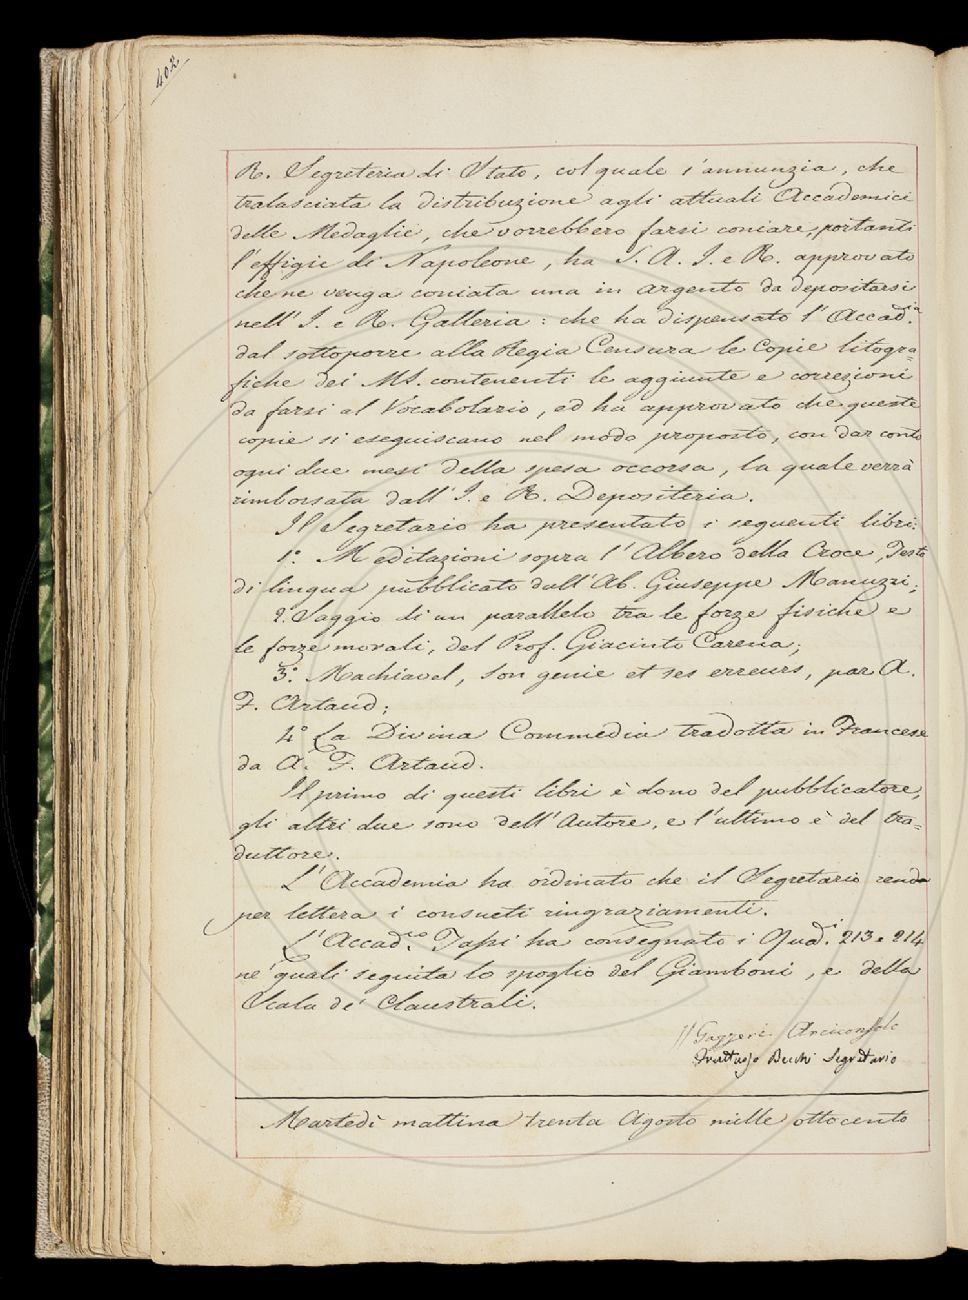 402
R. Segreteria di Stato, col quale s'annunzia, che
tralasciata la distribuzione agli attuali Accademici
delle Medaglie, che vorrebbero farsi coniare, portanti
l'effigie di Napoleone, ha S. A. I. e R. approvato
che ne venga coniata una in argento da depositarsi
nell' I. e R. Galleria: che ha dispensato l' Accad.ia
dal sottoporre alla Regia Censura le Copie litogra=
fiche dei MS. contenenti le aggiunte e correzioni
da farsi al Vocabolario, ed ha approvato che queste
copie si eseguiscano nel modo proposto, con dar conto
ogni due mesi della spesa occorsa, la quale verrà
rimborsata dall' I. e R. Depositeria.
Il Segretario ha presentato i seguenti libri:
1.° Meditazioni sopra l'Albero della Croce, Testo
di lingua pubblicato dall'Ab. Giuseppe Manuzzi;
2.° Saggio di un parallelo tra le forze fisiche e
le forze morali, del Prof. Giacinto Carena;
3.° Machiavel, son genie et ses erreurs, par A.
F. Artaud;
4.° La Divina Commedia tradotta in Francese
da A. F. Artaud.
Il primo di questi libri è dono del pubblicatore,
gli altri due sono dell'Autore, e l'ultimo è del tra=
duttore.
L'Accademia ha ordinato che il Segretario renda
per lettera i consueti ringraziamenti.
L'Accad.co Tassi ha consegnato i Quad.i 213 e 214
ne' quali seguita lo spoglio del Giamboni, e della
Scala de' Claustrali.
Gazzeri Arciconsolo
Fruttuoso Becchi Segretario
Martedì mattina trenta Agosto mille ottocento